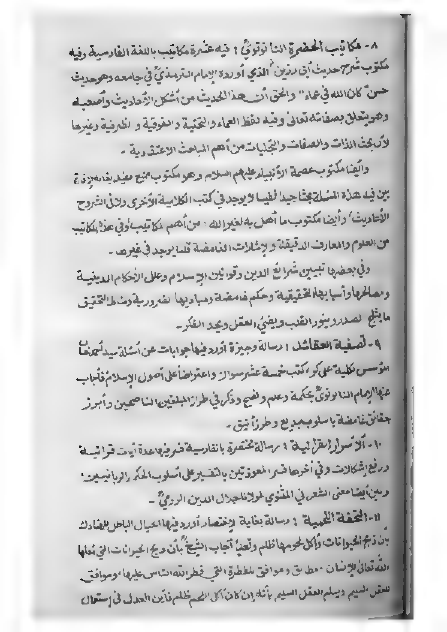 ٨- مكاتيب الحضرة النانوتويؒ: فيه عشرة مكاتيب باللغة الفارسية وفيه
مكتوب شرح حديث أبى رزينؓ الذى أورده الإمام الترمذىؒ في جامعه وهو حديث
حسن "كان الله في عماء" والحق أن هذا الحديث من أشكل الأحاديث وأصعبه
وهو يتعلق بصفاته تعالى وفيه لفظ العماء والتحتية والفوقية والظرفية وغيرها
لأن بحث الذات والصفات والتجليات من أهم المباحث الاعتقادية -
وأيضا مكتوب عصمة الأنبياء عليهم السلام وهو مكتوب ممتع مفيد
بين فيه هذه المسئلة بحثا جيدا نفيسا لا يوجد في كتب الكلامية الأخرى ولا في الشروح
الأحاديث، وأيضا مكتوب ما أهل به لغير الله - من أهم مكاتيب وفي هذا المكاتيب
من العلوم والمعارف الدقيقة والإشارات الغامضة قلما يوجد في غيرها -
وفي بعضها تبيين شرائع الدين وقوانين الإسلام وعلل الأحكام الدينية
ومصالحها وأسبابها الحقيقية وحكم غامضة ومباديها الضرورية ومناط التحقيق
ما يثلج الصدور وينور القلب ويضئ العقل ويجد الفكر -
٩- تصفية العقائد: رسالة وجيزة أورد فيها جوابات عن أسئلة سيد أحمد خان
مؤسس كلية على كره كتب خمسة عشر سوالا واعتراضا على أصول الإسلام فأجاب
عنها الإمام النانوتويؒ بحكمة وعلم ونصح وذكر في طراز المبلغين الناصحين وأبرز
حقائق غامضة بأسلوب بديع وطرز أنيق -
١٠- الأسرار القرآنية: رسالة مختصرة بالفارسية فسر فيها عدة آيات قرآنية
ورفع إشكالات وفي أخرها فسر المعوذتين بالتفسير على أسلوب الحكماء الربانيين
وبين أيضا معنى الشعر في المثنوي لمولانا جلال الدين الروميؒ -
١١- التحفة اللحمية: رسالة بغاية الإختصار أورد فيها الخيال الباطل للهنادك
بأن ذبح الحيوانات وأكل لحومها ظلم وتعد، أجاب الشيخؒ بأن ذبح الحيوانات التي أحلها
الله تعالى للإنسان - مطابق وموافق للفطرة التي فطر الله الناس عليها وموافق
للعقل السليم ويسلم العقل السليم بأنه إن كان أكل اللحم ظلم فأين العدل في إستعمال